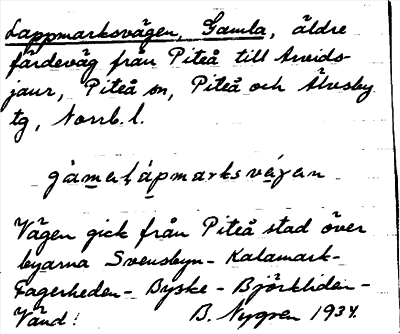 Lappmarksvägen, Gamla, äldre
färdeväg från Piteå till Arvids-
jaur, Piteå sn, Piteå och Älvsby
tg, Norrb. l.
gàmalápmarksvę́gen
Vägen gick från Piteå stad över
byarna Svensbyn - Kalamark -
Fagerheden - Byske - Björkliden -
Vänd! B. Nygren 1934.